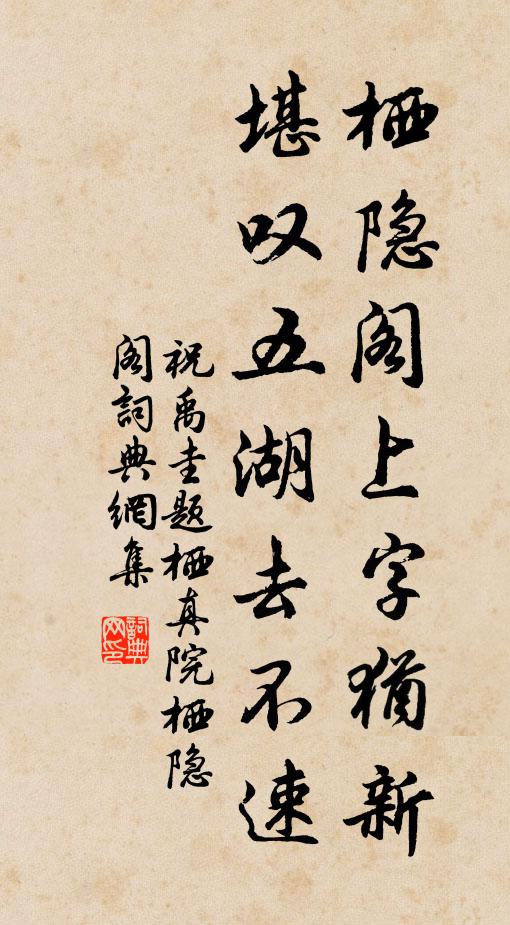 栖隐阁上字犹新
堪叹五湖去不速
祝禹圭题栖真院栖隐
阁词典網集
詞典
网印